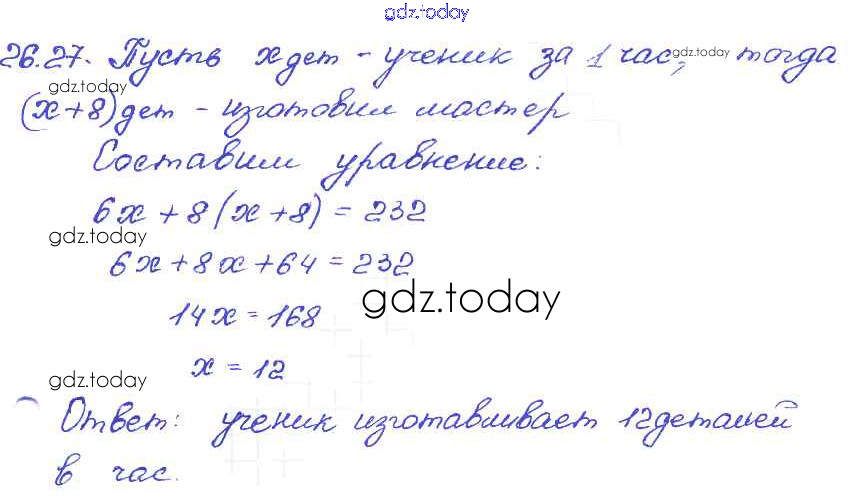 gdz.today
26.27. Пусть x дет - ученик за 1 час, gdz.today тогда
gdz.today
(x+8) дет - изготовил мастер
Составим уравнение:
6x + 8(x+8) = 232
gdz.today
6x+8x+64=232
gdz.today
14x=168
x = 12
gdz.today
Ответ: ученик изготавливает 12 деталей
в час.
gdz.today